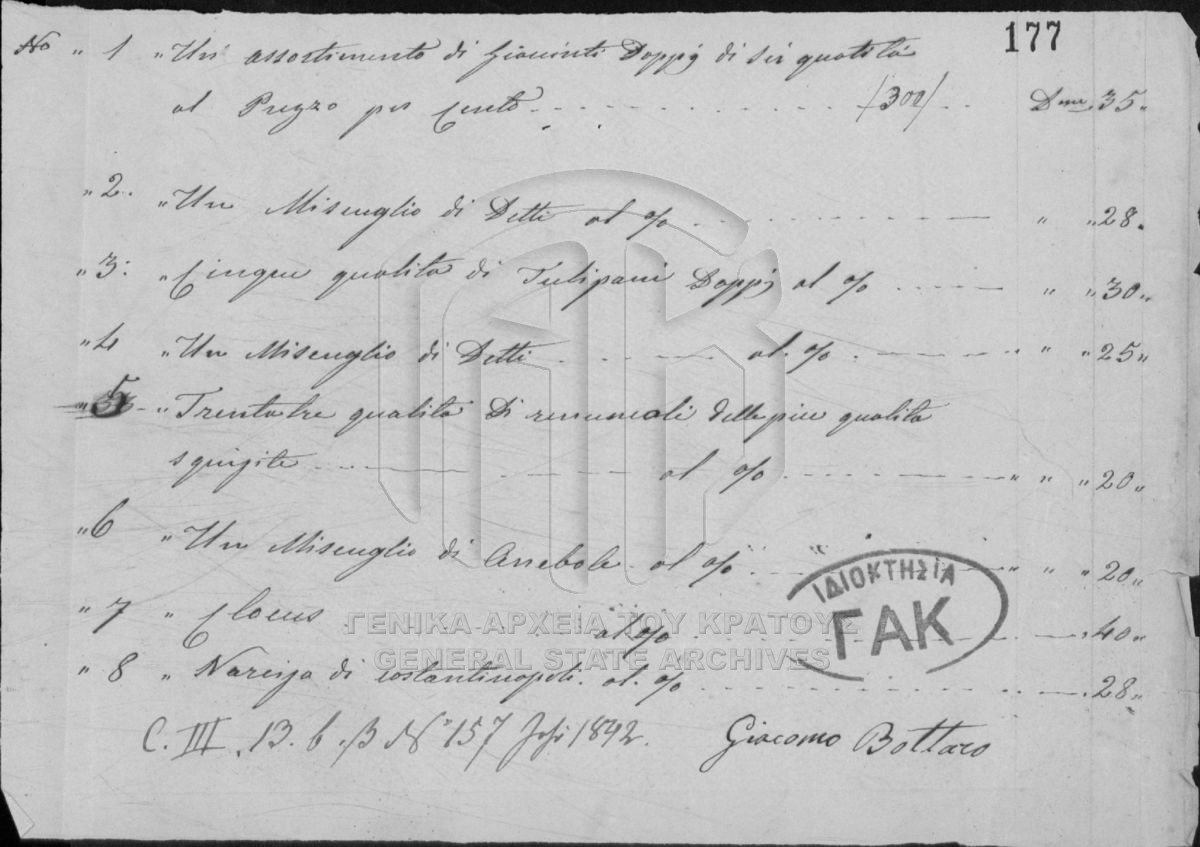 177
No " 1 " Un assortimento di Giacinti Doppj di sei qualità
al Prezzo per Cento /300/ Dme. 35 "
" 2. " Un Miscuglio di Detti al % " " 28 "
" 3. " Cinque qualità di Tulipani Doppj al % " " 30 "
" 4 " Un Miscuglio di Detti al % " " " 25 "
" 5 " Trentatre qualita di delle piu qualita
squisite al % " " " 20 "
" 6 " Un Miscuglio di al % " " " 20 "
" 7 " Crocus al % " 40 "
" 8 " Narciza di Costantinopoli al % " 28 "
C. III. 13. b. β No 157 1842. Giacomo Bottaro
ΙΔΙΟΚΤΗΣΙΑ
ΓΑΚ
ΓΕΝΙΚΑ ΑΡΧΕΙΑ ΤΟΥ ΚΡΑΤΟΥΣ
GENERAL STATE ARCHIVES